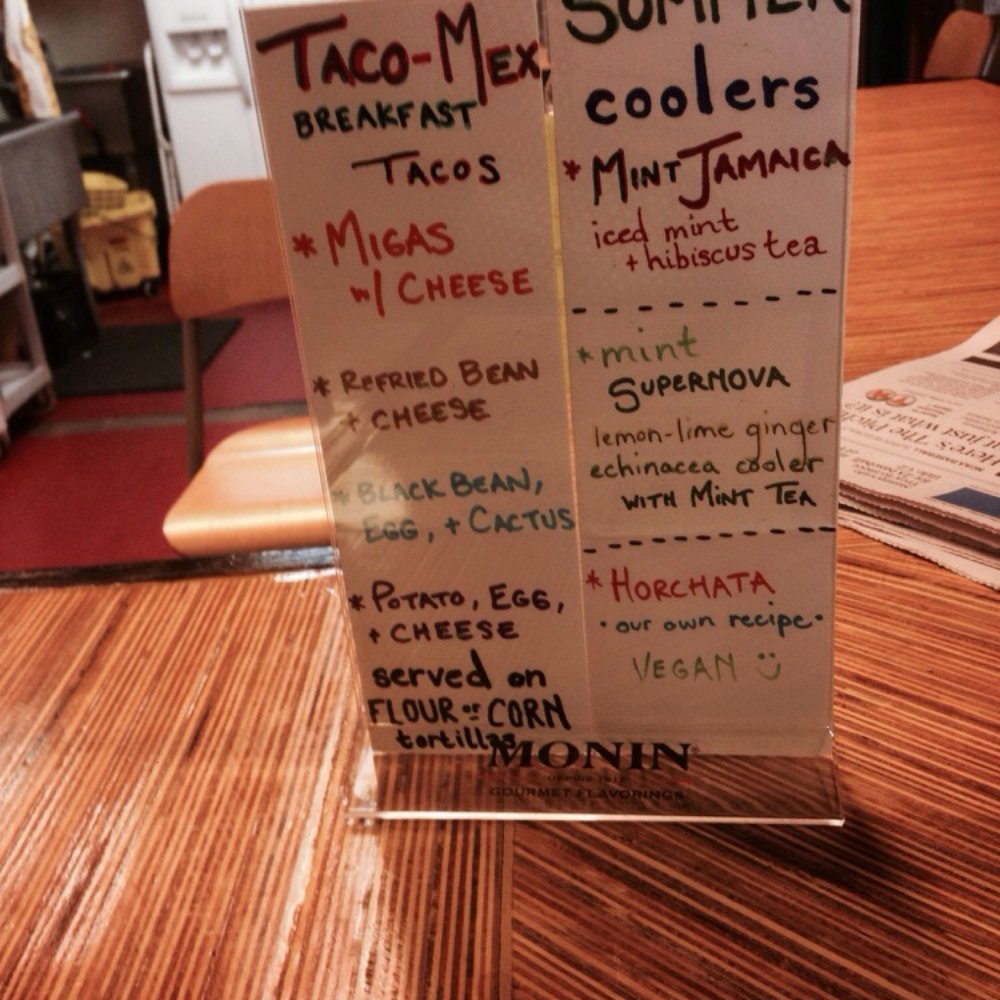 TACO-MEX
BREAKFAST
TACOS
* MIGAS
w/ CHEESE
* REFRIED BEAN
+ CHEESE
* BLACK BEAN,
EGG, + CACTUS
* POTATO, EGG,
+ CHEESE
served on
FLOUR or CORN
tortillas
SUMMER
coolers
* MINT JAMAICA
iced mint
+ hibiscus tea
* mint
SUPERNOVA
lemon-lime ginger
echinacea cooler
WITH MINT TEA
* HORCHATA
• our own recipe •
VEGAN
MONIN
DEPUIS 1912
GOURMET FLAVORINGS